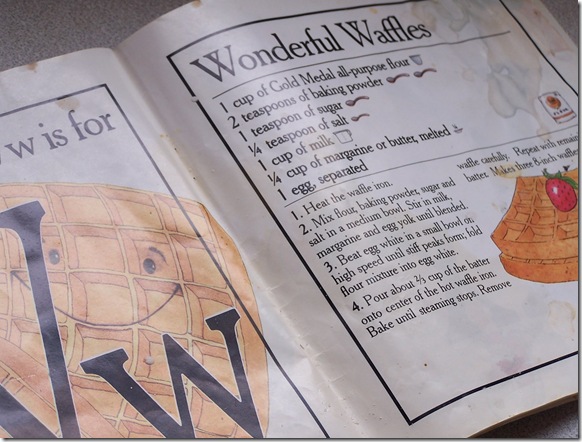 w is for
Ww
Wonderful Waffles
1 cup of Gold Medal all-purpose flour
2 teaspoons of baking powder
1 teaspoon of sugar
¼ teaspoon of salt
1 cup of milk
¼ cup of margarine or butter, melted
1 egg, separated
1. Heat the waffle iron.
2. Mix flour, baking powder, sugar and
salt in a medium bowl. Stir in milk,
margarine and egg yolk until blended.
3. Beat egg white in a small bowl on
high speed until stiff peaks form; fold
flour mixture into egg white.
4. Pour about ⅔ cup of the batter
onto center of the hot waffle iron.
Bake until steaming stops. Remove
waffle carefully. Repeat with remain
batter. Makes three 8-inch waffles